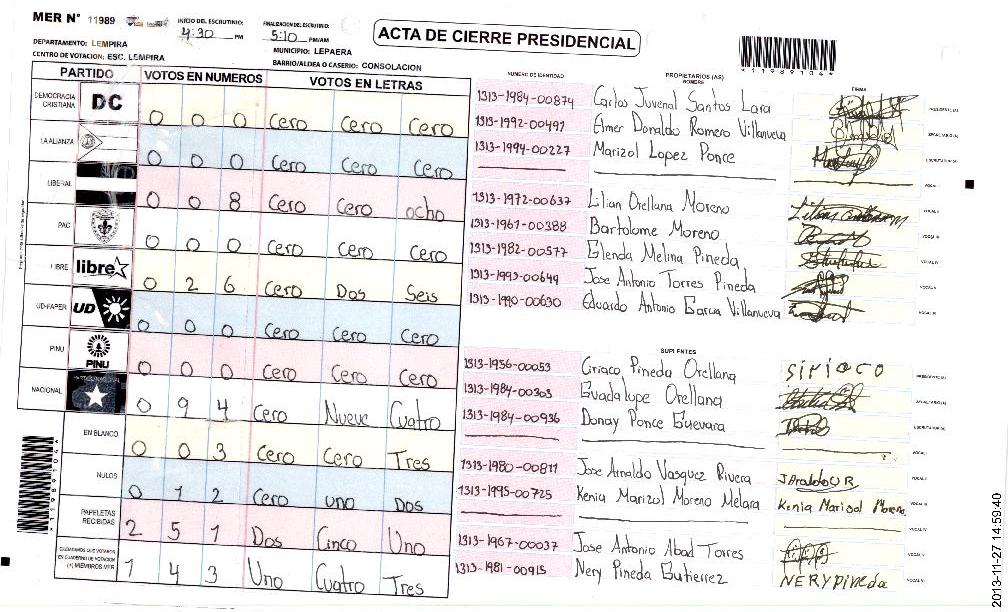 MER N° 11989
INICIO DEL ESCRUTINIO: 4:30 PM
FINALIZACION DEL ESCRUTINIO: 5:10 PM/AM
ACTA DE CIERRE PRESIDENCIAL
*11989104*
DEPARTAMENTO: LEMPIRA
MUNICIPIO: LEPAERA
CENTRO DE VOTACION: ESC. LEMPIRA
BARRIO/ALDEA O CASERIO: CONSOLACION
PARTIDO VOTOS EN NUMEROS VOTOS EN LETRAS
DEMOCRACIA CRISTIANA DC 0 0 0 Cero Cero Cero
LA ALIANZA 0 0 0 Cero Cero Cero
LIBERAL 0 0 8 Cero Cero ocho
PAC 0 0 0 Cero Cero Cero
LIBRE libre 0 2 6 Cero Dos Seis
UD-FAPER UD 0 0 0 Cero Cero Cero
PINU PINU 0 0 0 Cero Cero Cero
NACIONAL 0 9 4 Cero Nueve Cuatro
EN BLANCO 0 0 3 Cero Cero Tres
NULOS 0 1 2 Cero uno Dos
PAPELETAS RECIBIDAS 2 5 1 Dos Cinco Uno
CIUDADANOS QUE VOTARON EN CUADERNO DE VOTACION (+) MIEMBROS MER 1 4 3 Uno Cuatro Tres
*11989104*
NUMERO DE IDENTIDAD PROPIETARIOS (AS) NOMBRE FIRMA
1313-1984-00874 Carlos Juvenal Santos Lara PRESIDENTE(A)
1313-1992-00497 Elmer Donaldo Romero Villanueva SECRETARIO(A)
1313-1994-00227 Marizol Lopez Ponce ESCRUTADOR(A)
VOCAL I
1313-1972-00637 Lilian Orellana Moreno VOCAL II
1313-1967-00388 Bartolome Moreno VOCAL III
1313-1982-00577 Glenda Melina Pineda VOCAL IV
1313-1993-00649 Jose Antonio Torres Pineda VOCAL V
1313-1990-00630 Eduardo Antonio Garcia Villanueva VOCAL VI
SUPLENTES
1313-1956-00053 Ciriaco Pineda Orellana SIRIACO PRESIDENTE(A)
1313-1984-00303 Guadalupe Orellana SECRETARIO(A)
1313-1984-00936 Donay Ponce Guevara ESCRUTADOR(A)
VOCAL I
1313-1980-00811 Jose Arnaldo Vasquez Rivera VOCAL II
1313-1995-00725 Kenia Marizol Moreno Melara Kenia Marisol Moreno VOCAL III
VOCAL IV
1313-1967-00037 Jose Antonio Abad Torres VOCAL V
1313-1981-00915 Nery Pineda Gutierrez NERY pineda VOCAL VI
2013-11-27 14:59:40